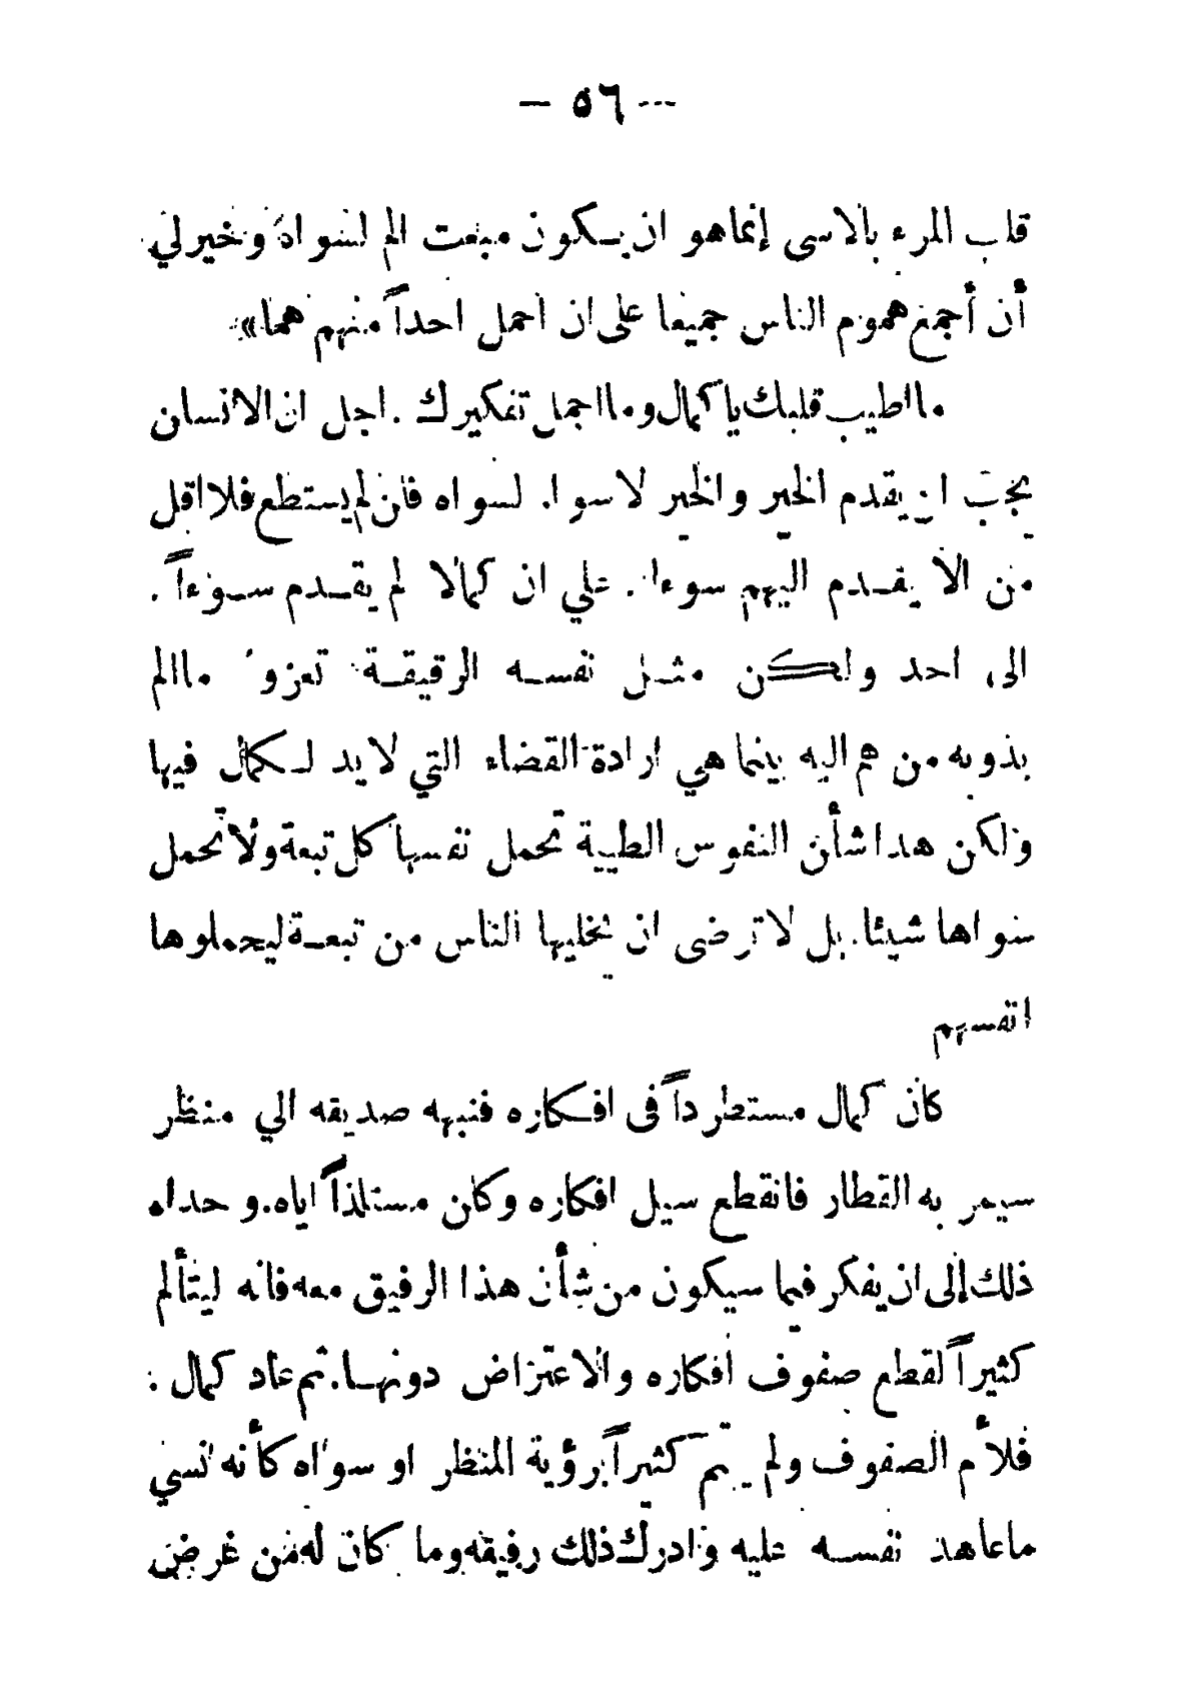 — ٥٦ —
قلب المرء بالاسى إنما هو ان يكون مبعث الم لسواه وخير لي
أن أجمع هموم الناس جميعا على ان احمل احداً منهم هما»
ما اطيب قلبك يا كمال وما اجمل تفكيرك . اجل ان الانسان
يجب ان يقدم الخير والخير لا سوا. لسواه فان لم يستطع فلا اقل
من الا يقدم اليهم سوءا . علي ان كمالا لم يقدم سوءاً .
الى احد ولكن مثل نفسه الرقيقة تعزو ما الم
بذويه من هم اليه بينما هي ارادة القضاء التي لا يد لكمال فيها
ولكن هذا شأن النفوس الطيبة تحمل نفسها كل تبعة ولا تحمل
سواها شيئا. بل لا ترضى ان يخليها الناس من تبعة ليحملوها
انفسهم
كان كمال مستطرداً فى افكاره فنبهه صديقه الي منظر
سيمر به القطار فانقطع سيل افكاره وكان مستلذاً اياه. وحداه
ذلك إلى ان يفكر فيما سيكون من شأن هذا الرفيق معه فانه ليتألم
كثيراً لقطع صفوف افكاره والاعتراض دونها. ثم عاد كمال :
فلأم الصفوف ولم يتم كثيراً برؤية المنظر او سواه كأنه نسي
ما عاهد نفسه عليه وادرك ذلك رفيقه وما كان له من غرض